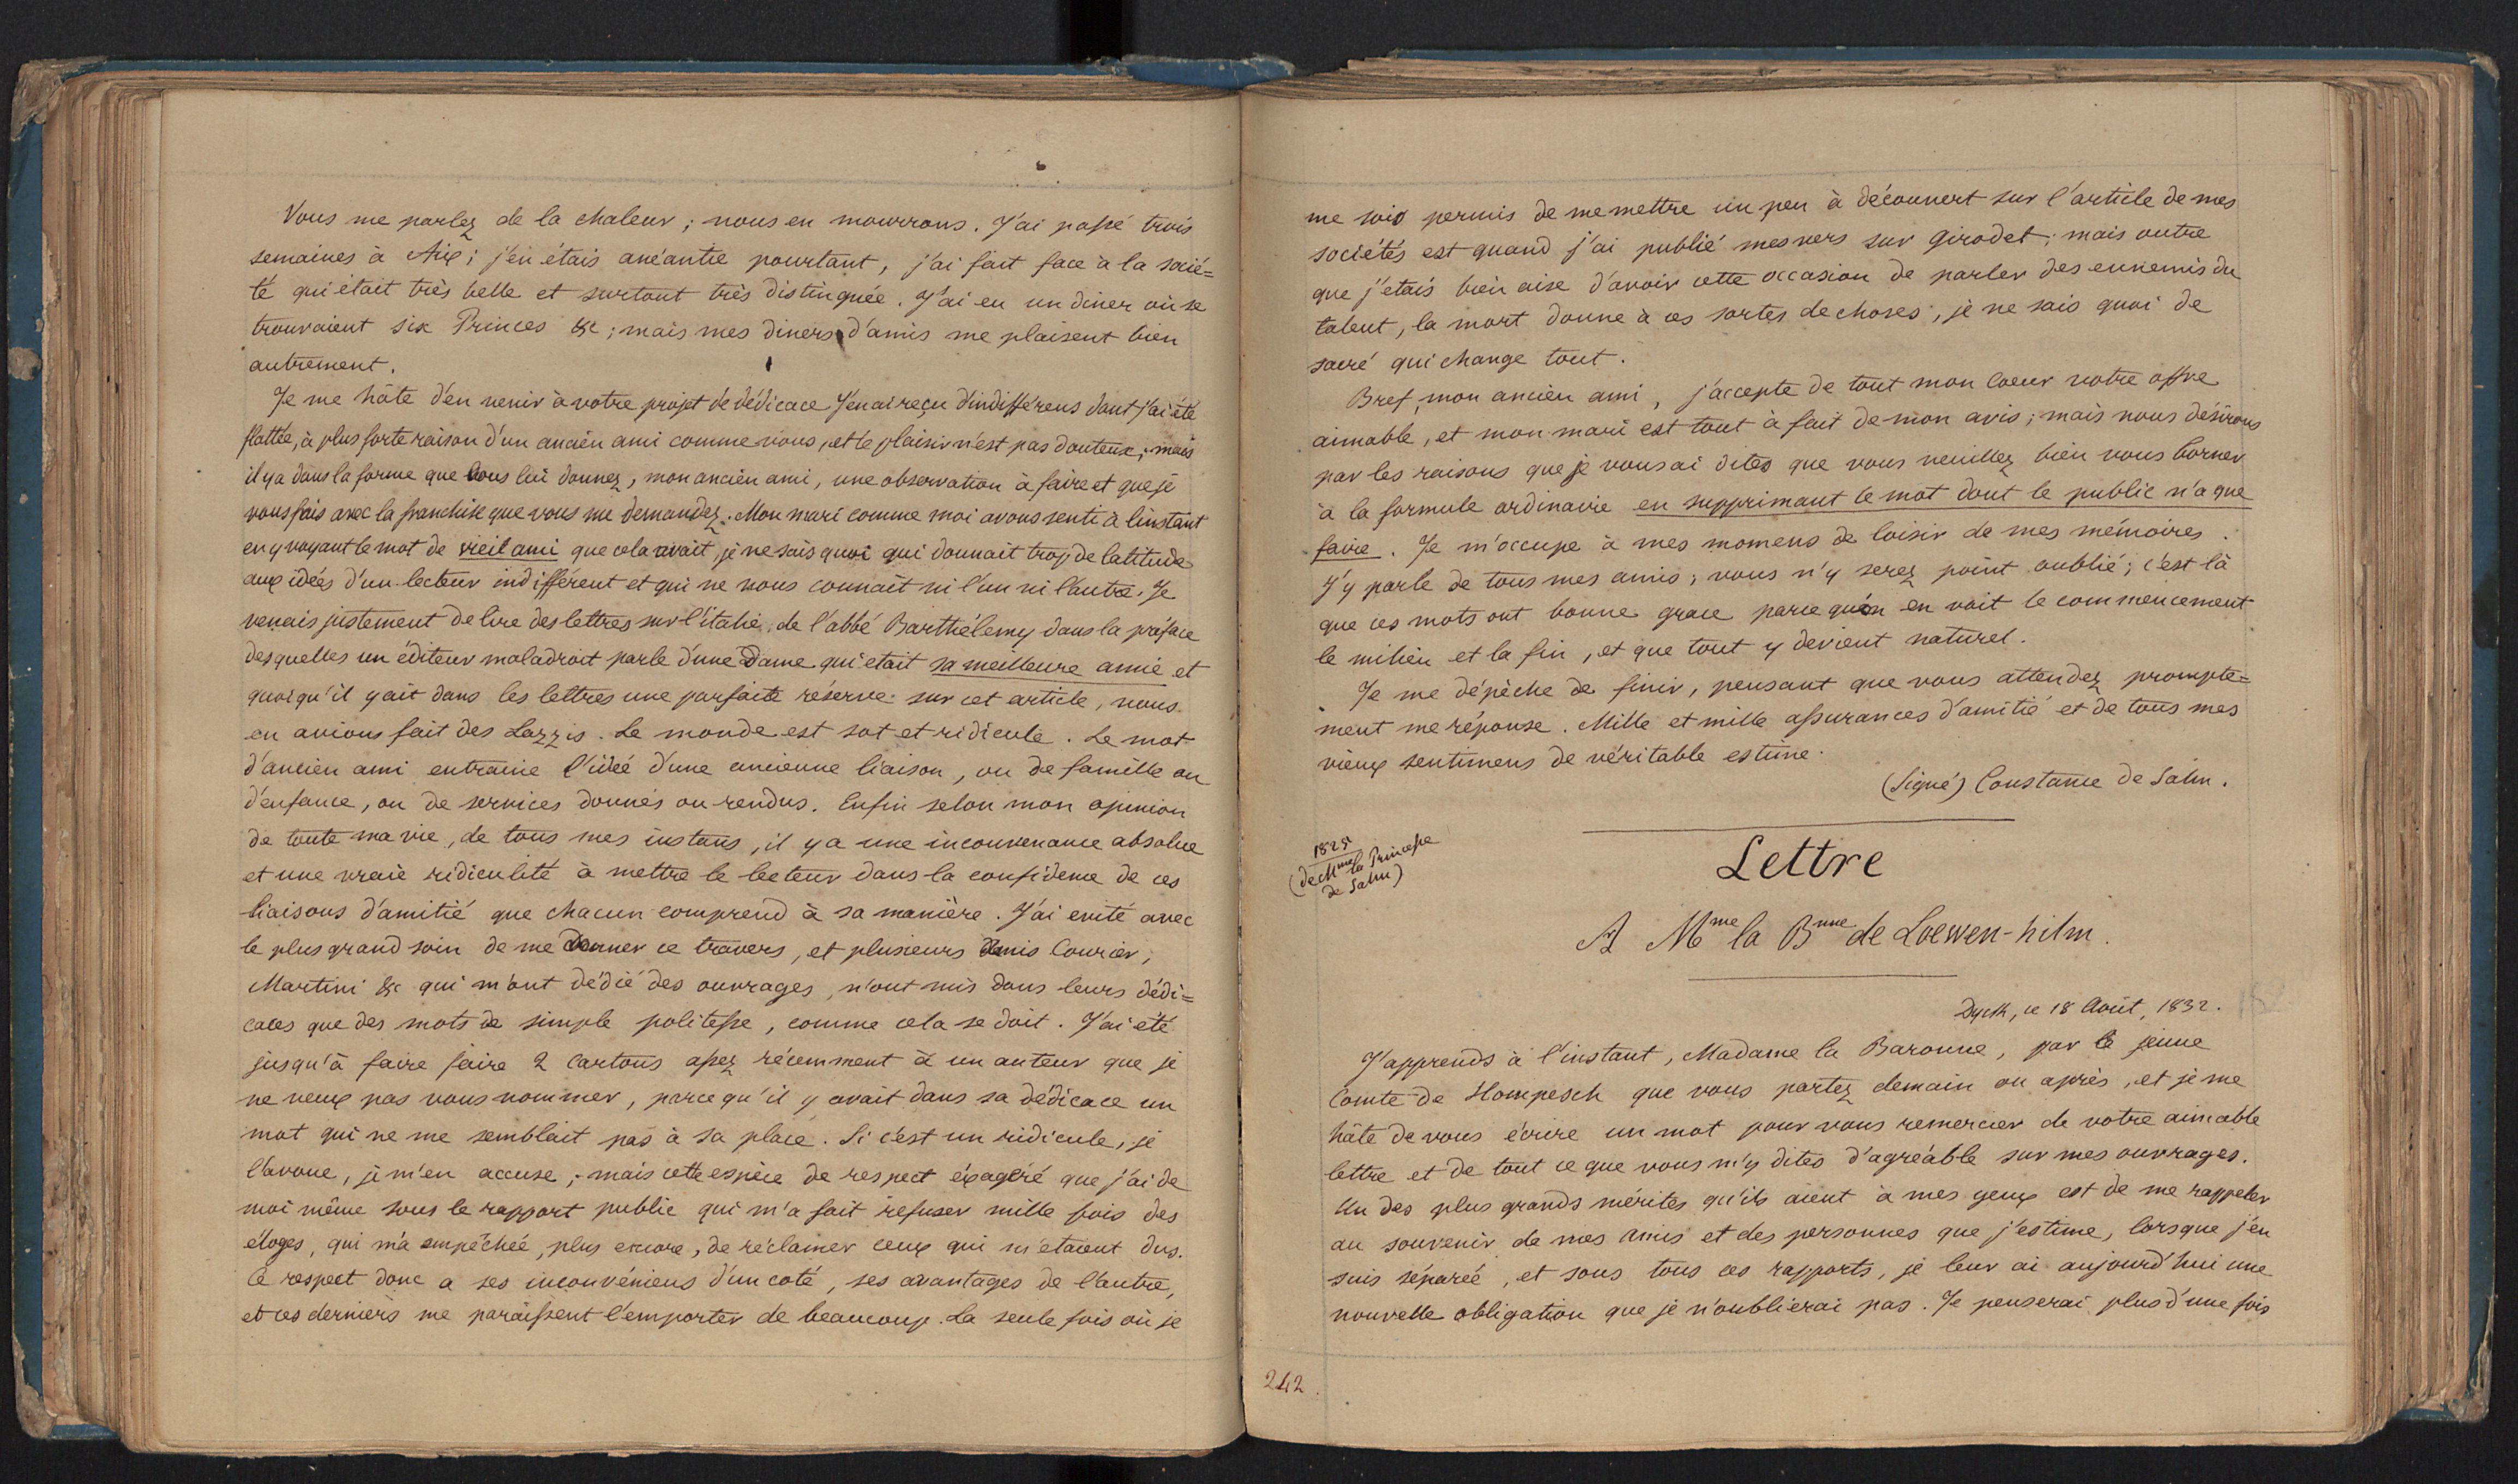 Vous me parlez de la chaleur ; nous en mourrons. J'ai passé trois
semaines à Aix ; j'en étais anéantie pourtant, j'ai fait face à la socié=
té qui était très belle et surtout très distinguée. J'ai eu un diner où se
trouvaient six Princes &c ; mais mes diners d'amis me plaisent bien
autrement.
Je me hâte d'en venir à votre projet de dédicace J'en ai reçu d'indifférens dont j'ai été
flattée, à plus forte raison d'un ancien ami comme vous, et le plaisir n'est pas douteux ; mais
il y a dans la forme que vous lui donnez, mon ancien ami, une observation à faire et que je
vous fais avec la franchise que vous me demandez. Mon mari comme moi avons senti à l'instant
en y voyant le mot de vieil ami que cela avait, je ne sais quoi qui donnait trop de latitude
aux idées d'un lecteur indifférent et qui ne nous connait ni l'un ni l'autre. Je
venais justement de lire des lettres sur l'italie de l'abbé Barthélemy dans la préface
desquelles un éditeur maladroit parle d'une Dame qui etait sa meilleure amie et
quoiqu'il y ait dans les lettres une parfaite réserve sur cet article, nous
en avions fait des Lazzis. Le monde est sot et ridicule. Le mot
d'ancien ami entraine l'idée d'une ancienne liaison, ou de famille ou
d'enfance, ou de services donnés ou rendus. Enfin selon mon opinion
de toute ma vie, de tous mes instans, il y a une inconvenance absolue
et une vraie ridiculité à mettre le lecteur dans la confidence de ces
liaisons d'amitié que chacun comprend à sa manière. J'ai evité avec
le plus grand soin de me donner ce travers, et plusieurs amis Courier,
Martini &c qui m'ont dédié des ouvrages, n'ont mis dans leurs dédi=
caces que des mots de simple politesse, comme cela se doit. J'ai été
jusqu'à faire faire 2 cartons assez récemment à un auteur que je
ne veux pas vous nommer, parce qu'il y avait dans sa dédicace un
mot qui ne me semblait pas à sa place. Si c'est un ridicule, je
l'avoue, je m'en accuse ; mais cette espèce de respect éxagéré que j'ai de
moi même sous le rapport public qui m'a fait refuser mille fois des
éloges, qui m'a empêchée, plus encore, de réclamer ceux qui m'etaient dus.
Ce respect donc a ses inconvéniens d'un coté, ses avantages de l'autre,
et ces derniers me paraissent l'emporter de beaucoup. La seule fois où je
me sois permis de me mettre un peu à découvert sur l'article de mes
sociétés est quand j'ai publié mes vers sur Girodet ; mais outre
que j'etais bien aise d'avoir cette occasion de parler des ennemis du
talent, la mort donne à ces sortes de choses, je ne sais quoi de
sacré qui change tout.
Bref, mon ancien ami, j'accepte de tout mon Coeur votre offre
aimable, et mon mari est tout à fait de mon avis ; mais nous désirons
par les raisons que je vous ai dites que vous veuillez bien vous borner
à la formule ordinaire en supprimant le mot dont le public n'a que
faire. Je m'occupe à mes momens de loisir de mes mémoires.
J'y parle de tous mes amis ; vous n'y serez point oublié ; c'est là
que ces mots ont bonne grace parce qu'on en voit le commencement
le milieu et la fin, et que tout y devient naturel.
Je me dépêche de finir, pensant que vous attendez prompte=
ment me réponse. Mille et mille assurances d'amitié et de tous mes
vieux sentimens de véritable estime.
(Signé) Constance de Salm.
1825
(de Mme la Princesse
de Salm)
Lettre
A Mme la Bnne de Loewen-hilm.
Dyck, ce 18 Août, 1832.
J'apprends à l'instant, Madame la Baronne, par le jeune
Comte de Hompesch que vous partez demain ou après, et je me
hâte de vous écrire un mot pour vous remercier de votre aimable
lettre et de tout ce que vous m'y dites d'agréable sur mes ouvrages.
Un des plus grands mérites qu'ils aient à mes yeux est de me rappeler
au souvenir de mes amis et des personnes que j'estime, lorsque j'en
suis séparée, et sous tous ces rapports, je leur ai aujourd'hui une
nouvelle obligation que je n'oublierai pas. Je penserai plus d'une fois
242.